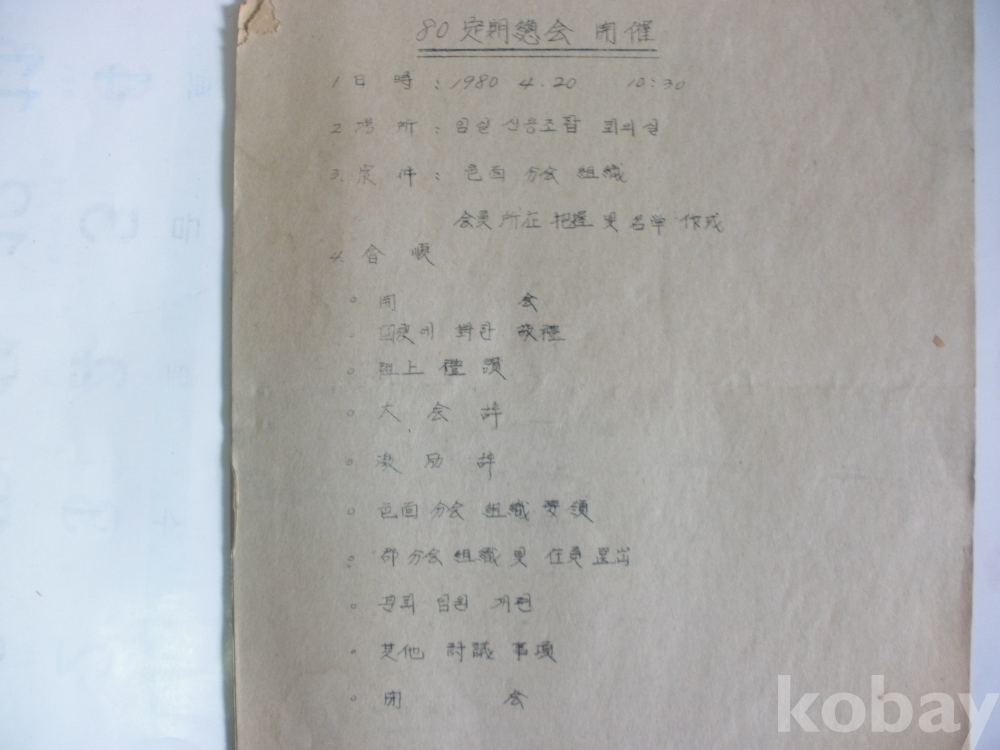 80 定期總会 開催
1 日 時 : 1980 4.20 10:30
2 場 所 : 임실 신용조합 회의실
3. 案 件 : 邑面 分会 組織
会員 所在 把握 및 名單 作成
4. 会 順
○ 開 会
○ 國旗에 對한 敬禮
○ 壇上 禮讚
○ 大 会 辞
○ 激 励 辞
○ 邑面 分会 組織 要領
○ 郡 分会 組織 및 任員 選出
○ 임원 개편
○ 其他 討議 事項
○ 閉 会
kobay